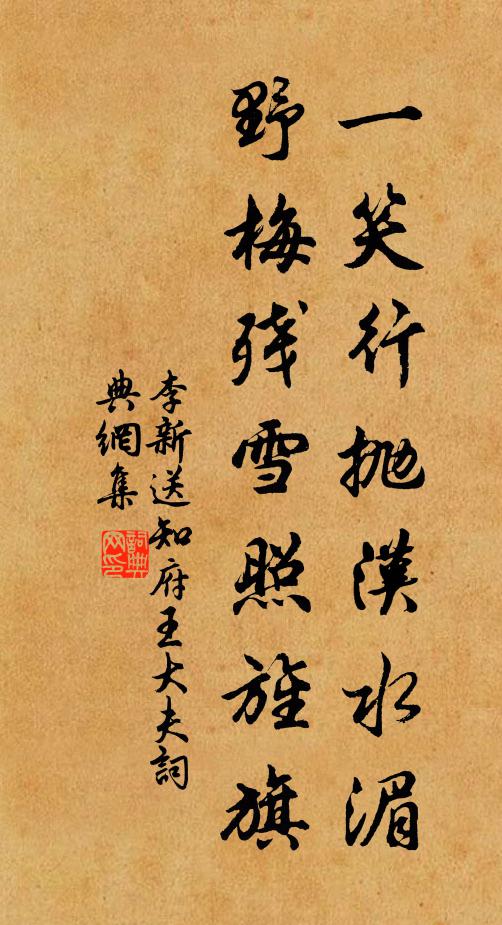 一笑行抛漢水湄
野梅残雪照旌旗
李新送知府王大夫詞
典網集
詞典网印